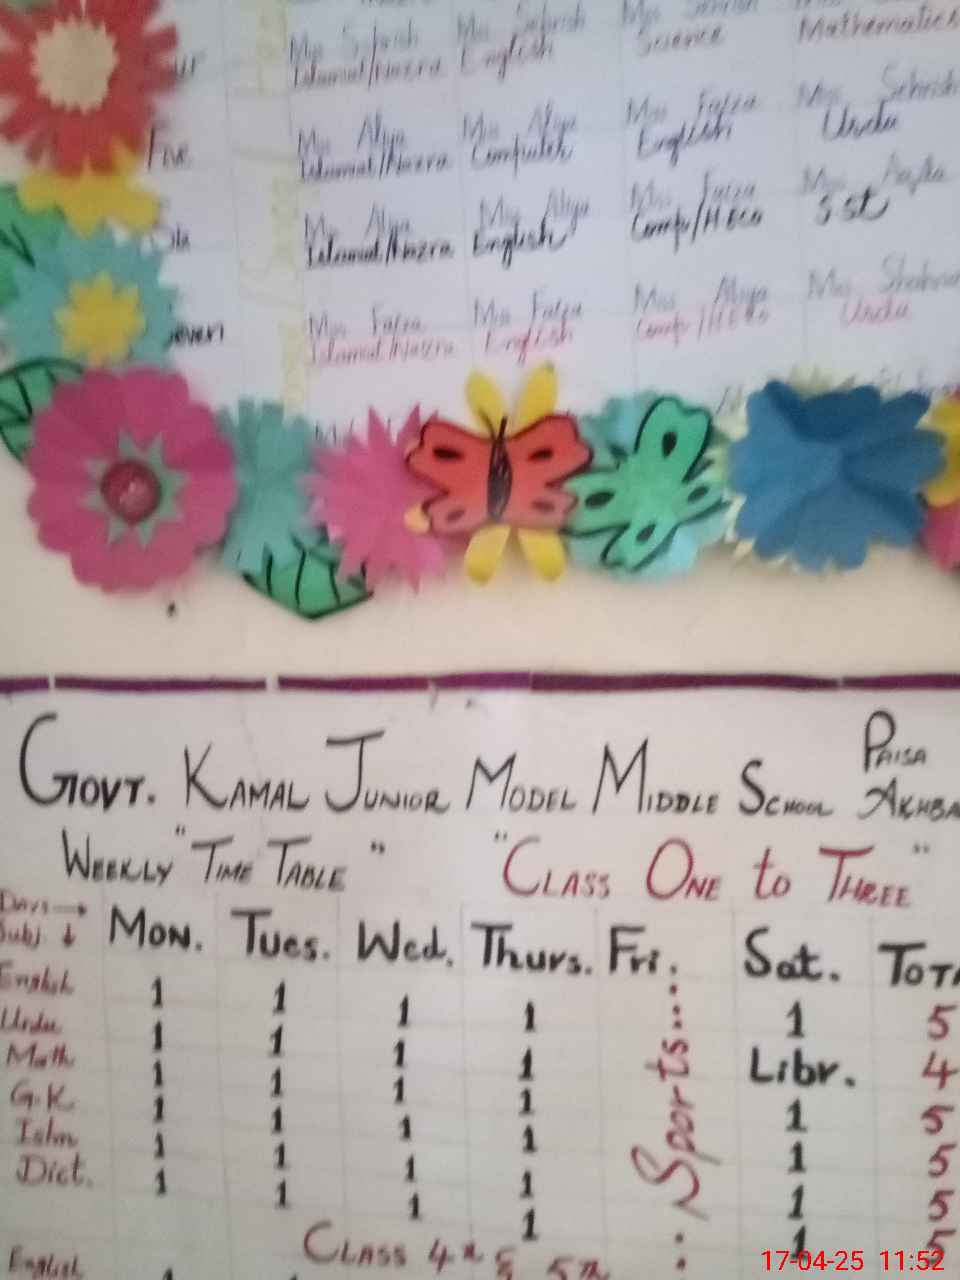 Science
Mathematics
Islamiat/Nazra English
Five
Miss Aliya Miss Aliya Miss Faiza Miss Sehrish
Islamiat/Nazra Computer English Urdu
Miss Aliya Miss Aliya Miss Faiza Miss
Islamiat/Nazra English Comp/H.Eco S.st
Miss Faiza Miss Faiza Miss Aliya Miss
even Islamiat/Nazra English Comp/H.Eco Urdu
GOVT. KAMAL JUNIOR MODEL MIDDLE SCHOOL PAISA AKHBA
WEEKLY "TIME TABLE" "CLASS ONE to THREE"
Days→ Mon. Tues. Wed. Thurs. Fri. Sat. TOTA
Subj. ↓
English 1 1 1 1 1 5
Urdu 1 1 1 1 Libr. 4
Math 1 1 1 1 1 5
G.K 1 1 1 1 1 5
Islm 1 1 1 1 1 5
Dict. 1 1 1 1 1 5
Sports...
CLASS 4th & 5th
English 1
17-04-25 11:52